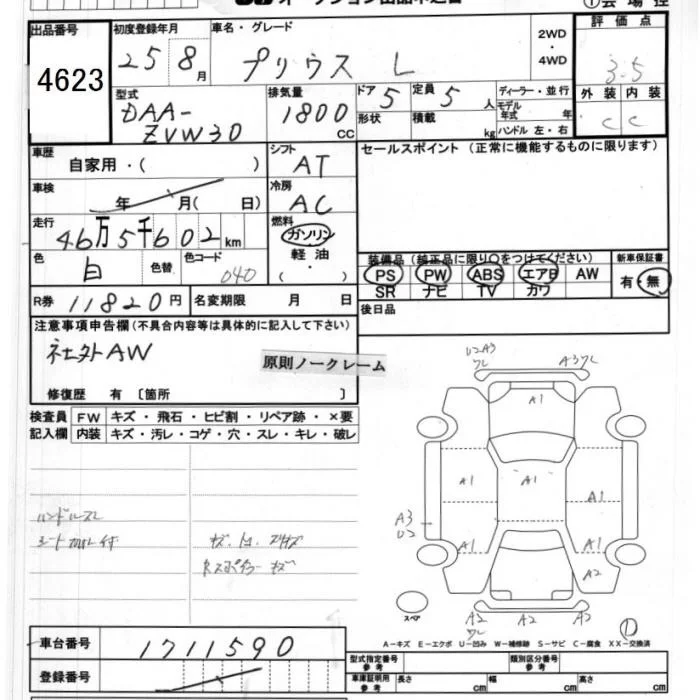 出品番号 初度登録年月 車名・グレード 2WD・4WD 評価点
4623 25 8月 プリウス L 3.5
型式 排気量 ドア 定員 ディーラー・並行 外装 内装
DAA-ZVW30 1800CC 5 5人 モデル年式 年 C C
形状 積載 kg ハンドル 左・右
車歴 自家用・( ) シフト AT セールスポイント (正常に機能するものに限ります)
車検 年 月( 日) 冷房 AC
走行 46万5千602km 燃料 ガソリン
軽油
・
( )
色 白 色替 色コード 040
装備品 (純正品に限り○をつけてください) 新車保証書
PS PW ABS エアB AW 有・無
SR ナビ TV カワ
R券 11820円 名変期限 月 日 後日品
注意事項申告欄 (不具合内容等は具体的に記入して下さい)
社外AW
原則ノークレーム
修復歴 有 〔箇所 〕
検査員記入欄 FW キズ・飛石・ヒビ割・リペア跡・×要
内装 キズ・汚レ・コゲ・穴・スレ・キレ・破レ
ハンドルスレ
U2A3 ワレ A3ワレ
A1
A1 A1 A1
A3 U2
A1 A1
A2
スペア
A2 ワレ A2 A2
A-キズ E-エクボ U-凹み W-補修跡 S-サビ C-腐食 XX-交換済
車台番号 1711590
登録番号
型式指定番号 参考 類別区分番号 参考
車庫証明用 参考 長さ cm 幅 cm 高さ cm